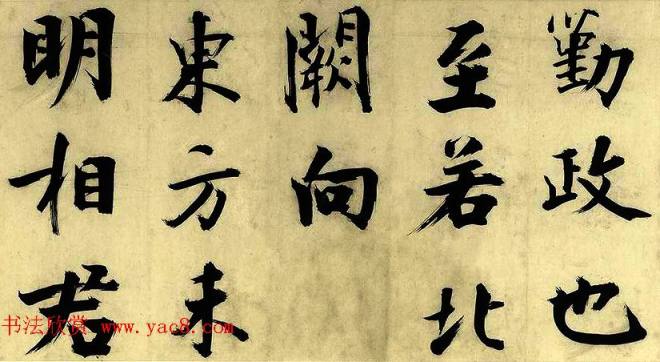 勤政也
至若北
闕向
東方未
明相君
书法欣赏 www.yac8.com